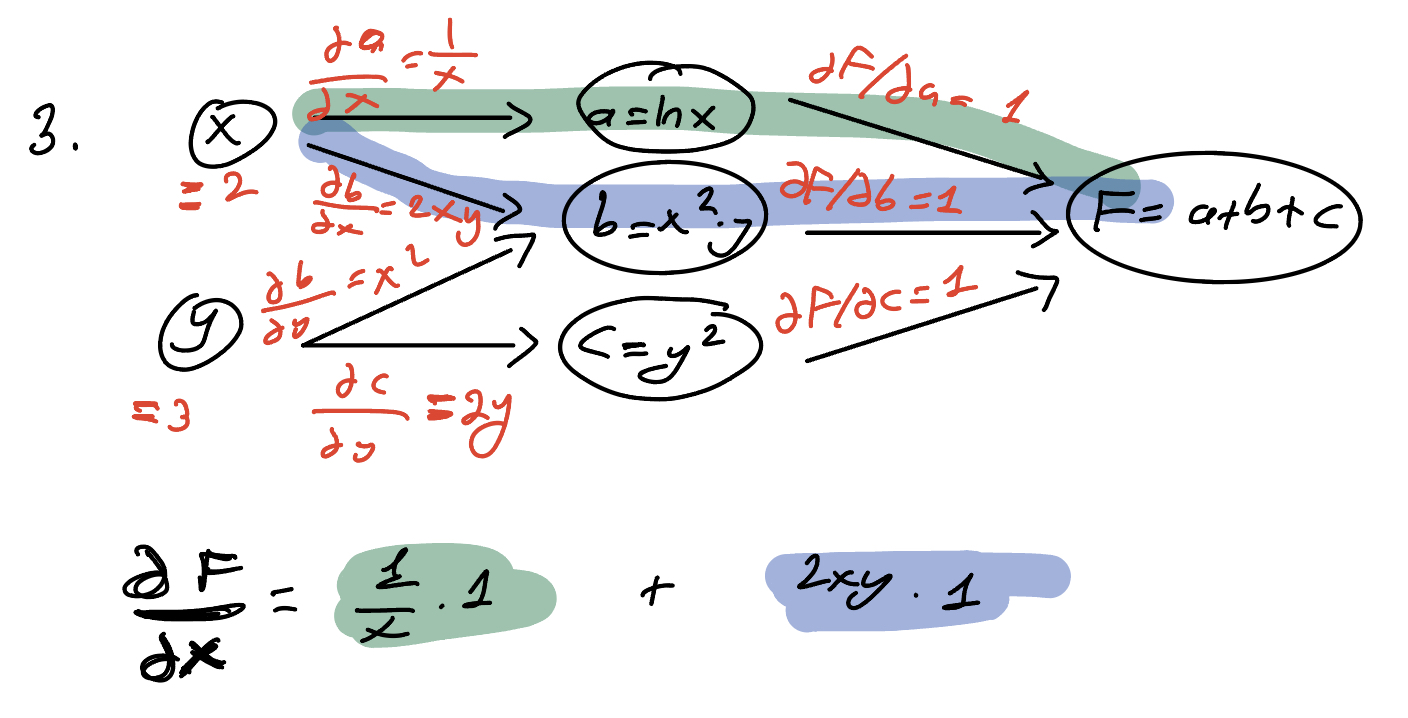 3.
x
= 2
∂a/∂x = 1/x
a = ln x
∂F/∂a = 1
∂b/∂x = 2xy
b = x²·y
∂F/∂b = 1
F = a+b+c
y
= 3
∂b/∂y = x²
∂c/∂y = 2y
c = y²
∂F/∂c = 1
∂F/∂x = 1/x · 1 + 2xy · 1